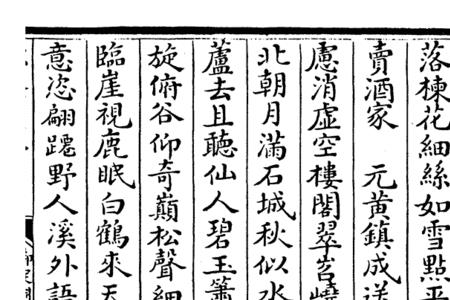 落楝花細絲如雪點平
賣酒家　元黃鎮成送
慮消虛空樓閣翠岧嶢
北朝月滿石城秋似水
蘆去且聽仙人碧玉簫
旋俯谷仰奇巔松聲細
臨崖視鹿眠白鶴來天
意恣翩躚野人溪外語